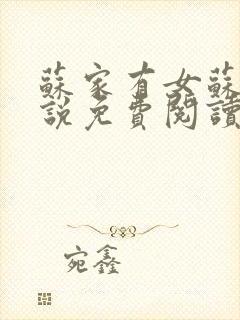 蘇家有女蘇
說免費閱讀
宛鑫